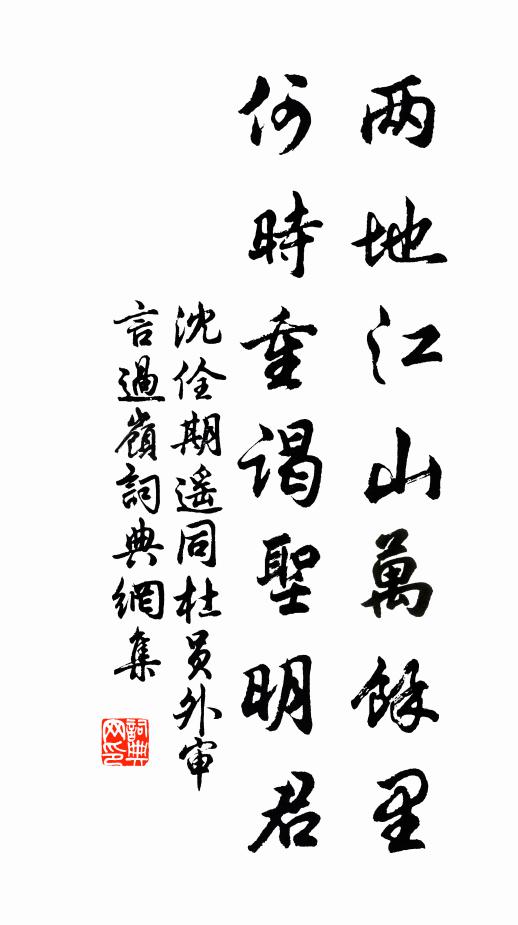 两地江山萬餘里
何時重谒聖明君
沈佺期遥同杜員外审
言過嶺詞典網集
詞典网印